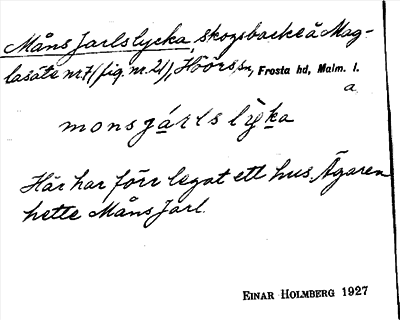 Måns Jarlslycka, skogsbacke å Mag-
lasäte nr 7 (fig. nr. 21), Höörs sn, Frosta hd, Malm. l.
a.
monsjárls lỳka
Här har förr legat ett hus. Ägaren
hette Måns Jarl.
EINAR HOLMBERG 1927